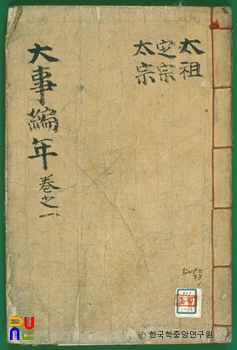 太祖
定宗
太宗
大事編年 卷之一
© 한국학중앙연구원